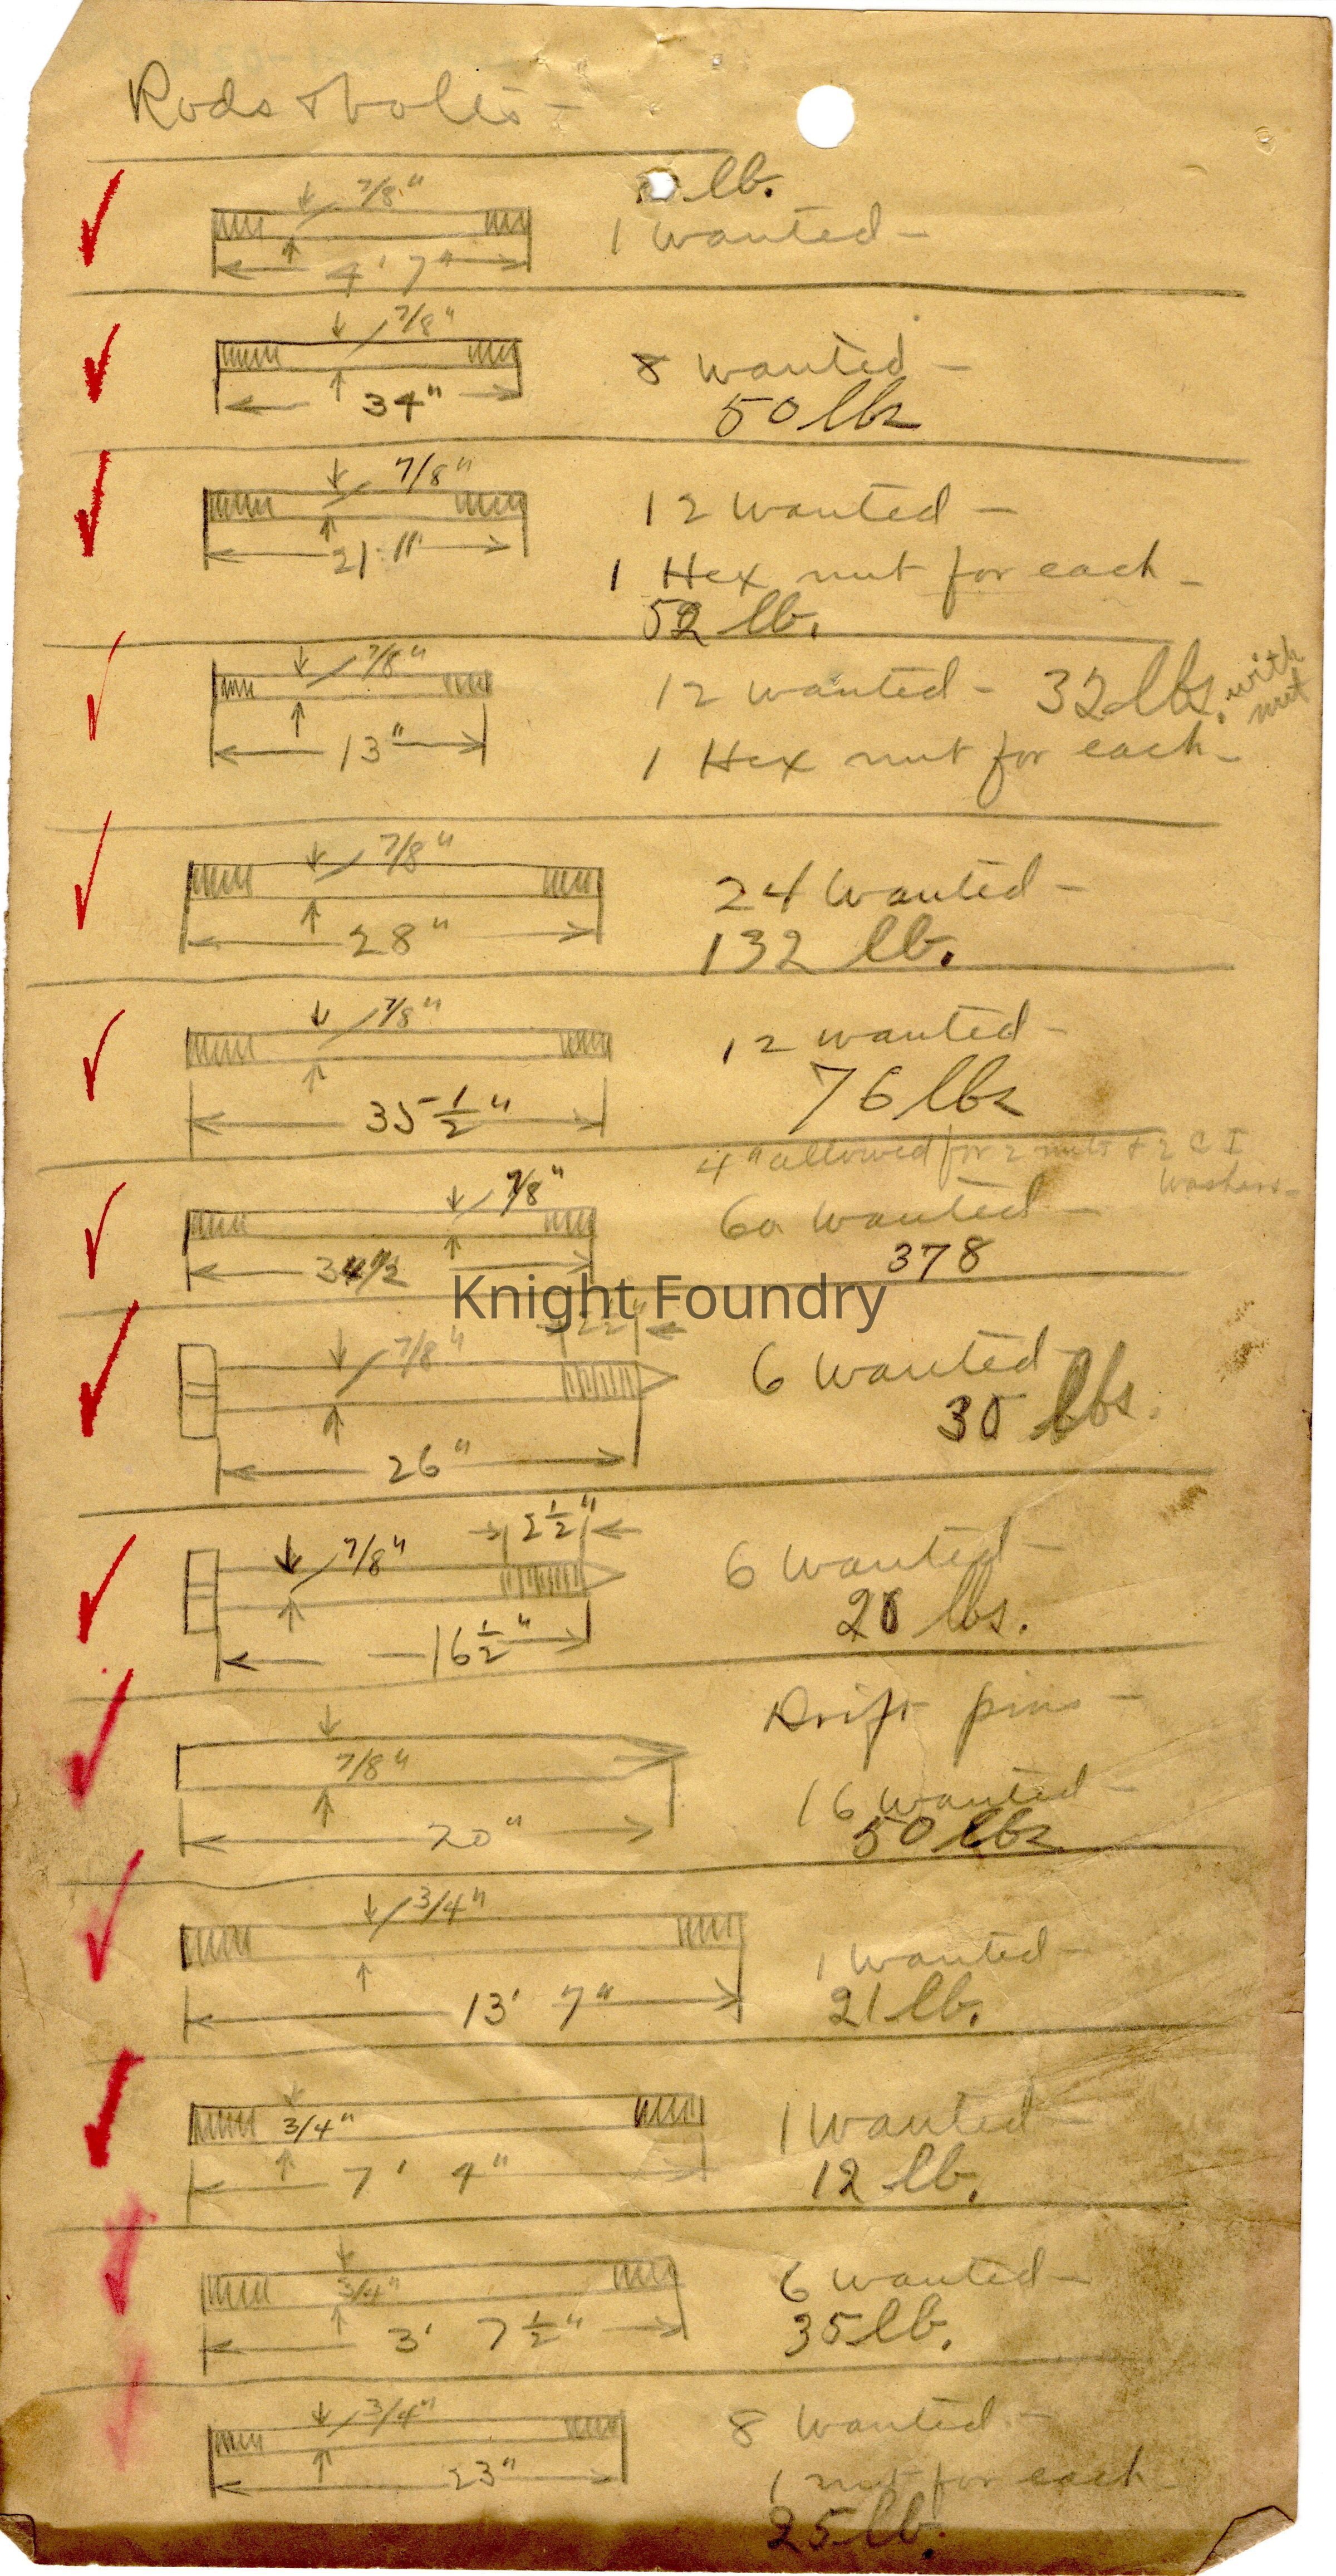 Rods & bolts -
7/8"
lb.
1 wanted -
4' 7"
7/8"
8 wanted -
34"
50 lbs
7/8"
12 wanted -
21"
1 Hex nut for each -
52 lb.
7/8"
12 wanted - 32 lbs. with nut
13"
1 Hex nut for each -
7/8"
24 wanted -
28"
132 lb.
7/8"
12 wanted -
35 1/2"
76 lbs
4" allowed for 2 nuts & 2 C I
washers -
7/8"
60 wanted -
34 1/2
378
Knight Foundry
7/8"
6 wanted -
30 lbs.
26"
2 1/2"
7/8"
6 wanted -
20 lbs.
16 1/2"
Drift pins -
7/8"
16 wanted -
20"
50 lbs
3/4"
1 wanted -
13' 7"
21 lb.
3/4"
1 wanted -
7' 4"
12 lb.
3/4"
6 wanted -
3' 7 1/2"
35 lb.
3/4"
8 wanted -
23"
1 nut for each -
25 lb.